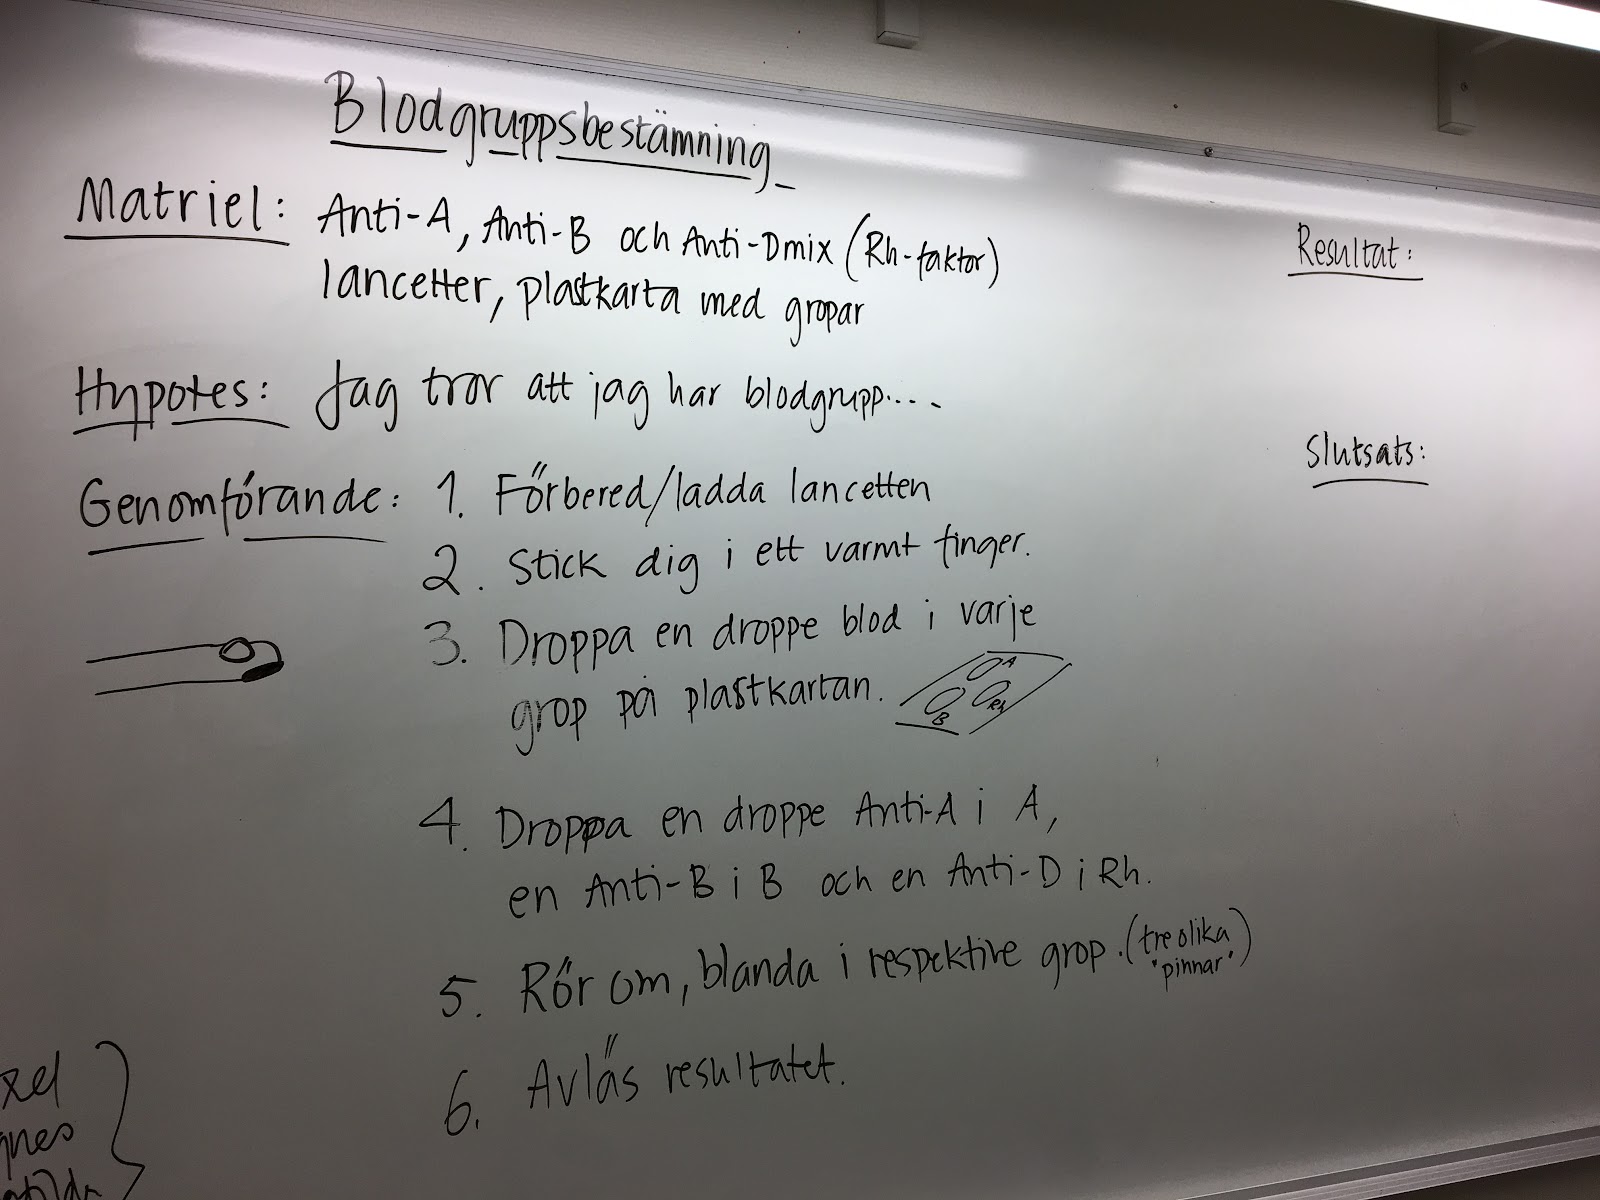 Blodgruppsbestämning
Matriel: Anti-A, Anti-B och Anti-Dmix (Rh-faktor)
lancetter, plastkarta med gropar
Hypotes: Jag tror att jag har blodgrupp....
Genomförande: 1. Förbered/ladda lancetten
2. Stick dig i ett varmt finger.
3. Droppa en droppe blod i varje
grop på plastkartan.
A
B
Rh
4. Droppa en droppe Anti-A i A,
en Anti-B i B och en Anti-D i Rh.
5. Rör om, blanda i respektive grop. (tre olika
"pinnar")
6. Avläs resultatet.
Resultat:
Slutsats: